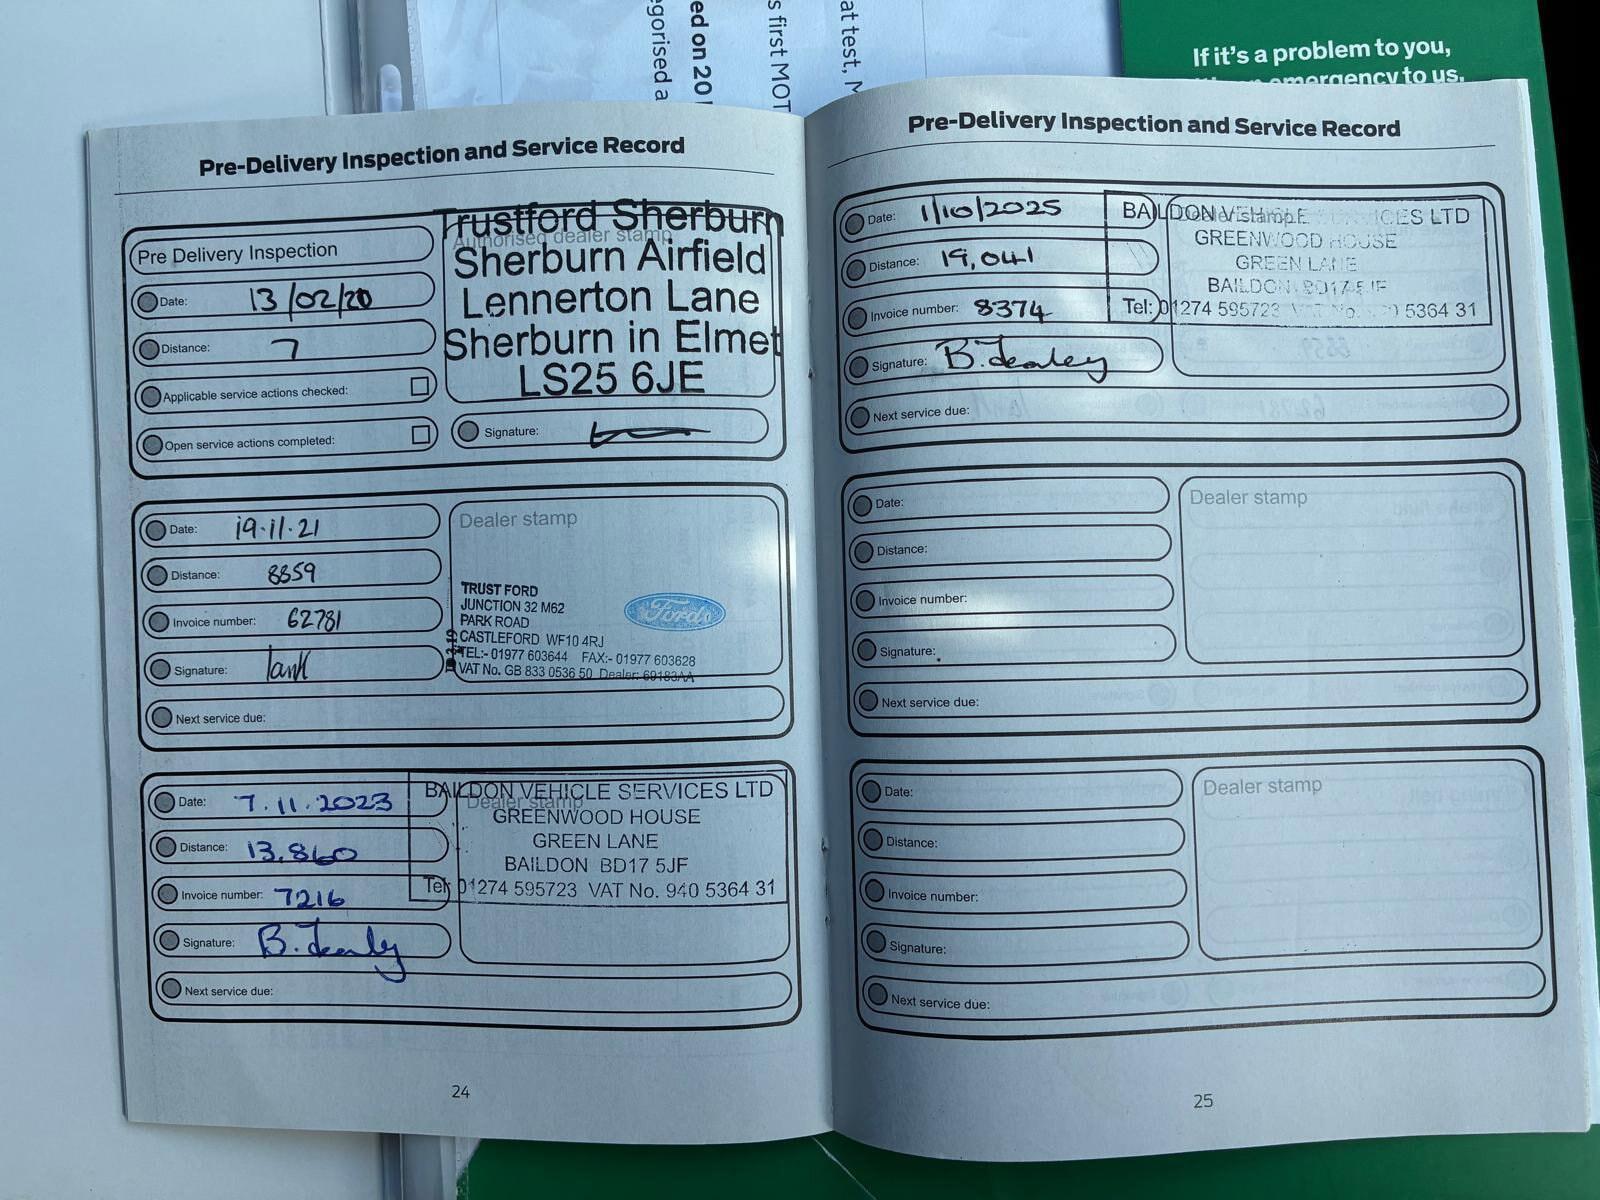 ed on 20
egorised a
s first MOT
at test, M
If it's a problem to you,
emergency to us.
Pre-Delivery Inspection and Service Record
Pre Delivery Inspection
Date: 13/02/20
Distance: 7
Applicable service actions checked:
Open service actions completed:
Authorised dealer stamp
Trustford Sherburn
Sherburn Airfield
Lennerton Lane
Sherburn in Elmet
LS25 6JE
Signature:
Date: 19.11.21
Distance: 8859
Invoice number: 62781
Signature:
Dealer stamp
TRUST FORD
JUNCTION 32 M62
PARK ROAD
CASTLEFORD WF10 4RJ
TEL:- 01977 603644 FAX:- 01977 603628
VAT No. GB 833 0536 50 Dealer: 69183AA
Ford
Next service due:
Date: 7.11.2023
Distance: 13,860
Invoice number: 7216
Signature: B.
Dealer stamp
BAILDON VEHICLE SERVICES LTD
GREENWOOD HOUSE
GREEN LANE
BAILDON BD17 5JF
Tel: 01274 595723 VAT No. 940 5364 31
Next service due:
24
Pre-Delivery Inspection and Service Record
Date: 1/10/2025
Distance: 19,041
Invoice number: 8374
Signature: B.
Dealer stamp
BAILDON VEHICLE SERVICES LTD
GREENWOOD HOUSE
GREEN LANE
BAILDON BD17 5JF
Tel: 01274 595723 VAT No. 940 5364 31
Next service due:
Date:
Distance:
Invoice number:
Signature:
Dealer stamp
Next service due:
Date:
Distance:
Invoice number:
Signature:
Dealer stamp
Next service due:
25